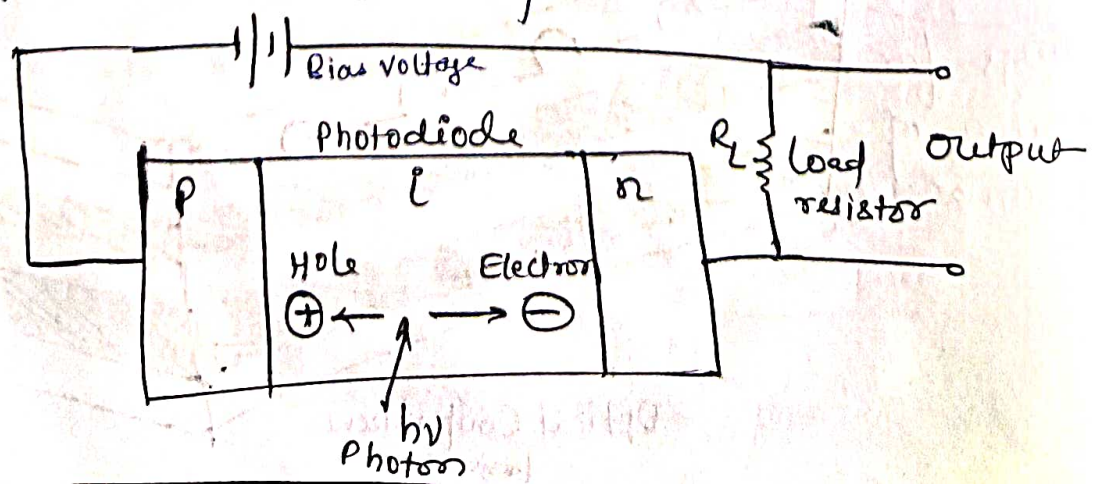 Bias voltage
Photodiode
P
i
n
R_L
Load
resistor
Output
Hole
Electron
+
−
hν
Photon